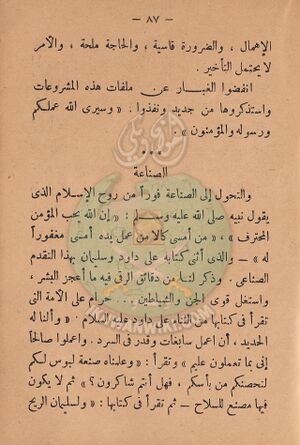 — ٨٧ —
الإهمال ، والضرورة قاسية ، والحاجة ملحة ، والأمر
لا يحتمل التأخير .
انفضوا الغبار عن ملفات هذه المشروعات
واستذكروها من جديد ونفذوا . « وسيرى الله عملكم
ورسوله والمؤمنون » .
* * *
الصناعة
والتحول إلى الصناعة فوراً من روح الإسلام الذى
يقول نبيه صلى الله عليه وسلم : « إن الله يحب المؤمن
المحترف » ، « من أمسى كالا من عمل يده أمسى مغفوراً
له » — والذى أثنى كتابه على داود وسليمان بهذا التقدم
الصناعى . وذكر لنا من دقائق الرقى فيه ما أعجز البشر ،
واستغل قوى الجن والشياطين . حرام على الأمة التى
تقرأ فى كتابها من الثناء على داود عليه السلام « وألنا له
الحديد ، أن اعمل سابغات وقدر فى السرد . واعملوا صالحاً
إنى بما تعملون عليم » وتقرأ : « وعلمناه صنعة لبوس لكم
لتحصنكم من بأسكم ، فهل أنتم شاكرون ؟ » ثم لا يكون
فيها مصنع للسلاح — ثم تقرأ فى كتابها : « ولسليمان الريح